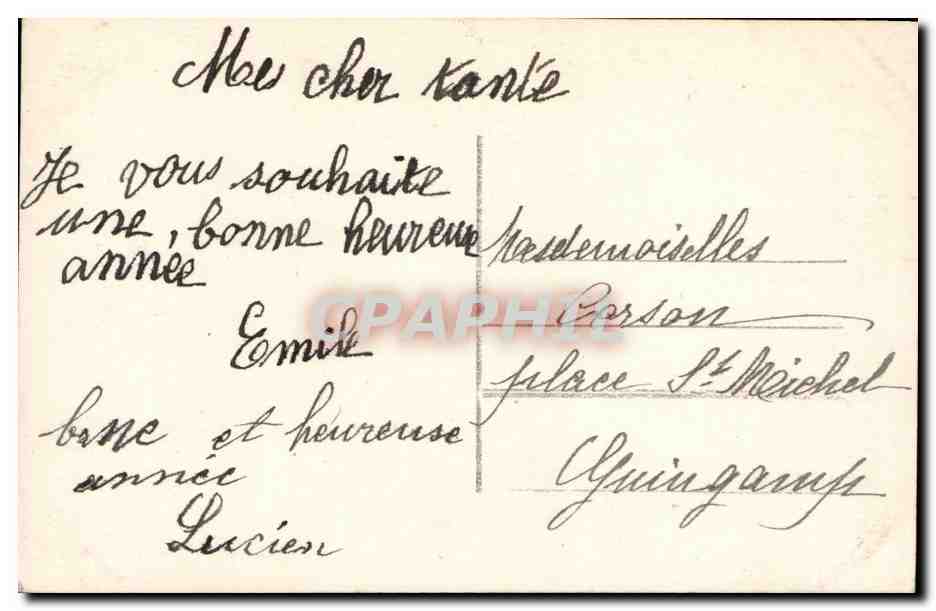 Mes cher tante
Je vous souhaite
une, bonne heureuse
année
Emile
bonne et heureuse
année
Lucien
Mesdemoiselles
Corson
place St Michel
Guingamp
CPAPHIL